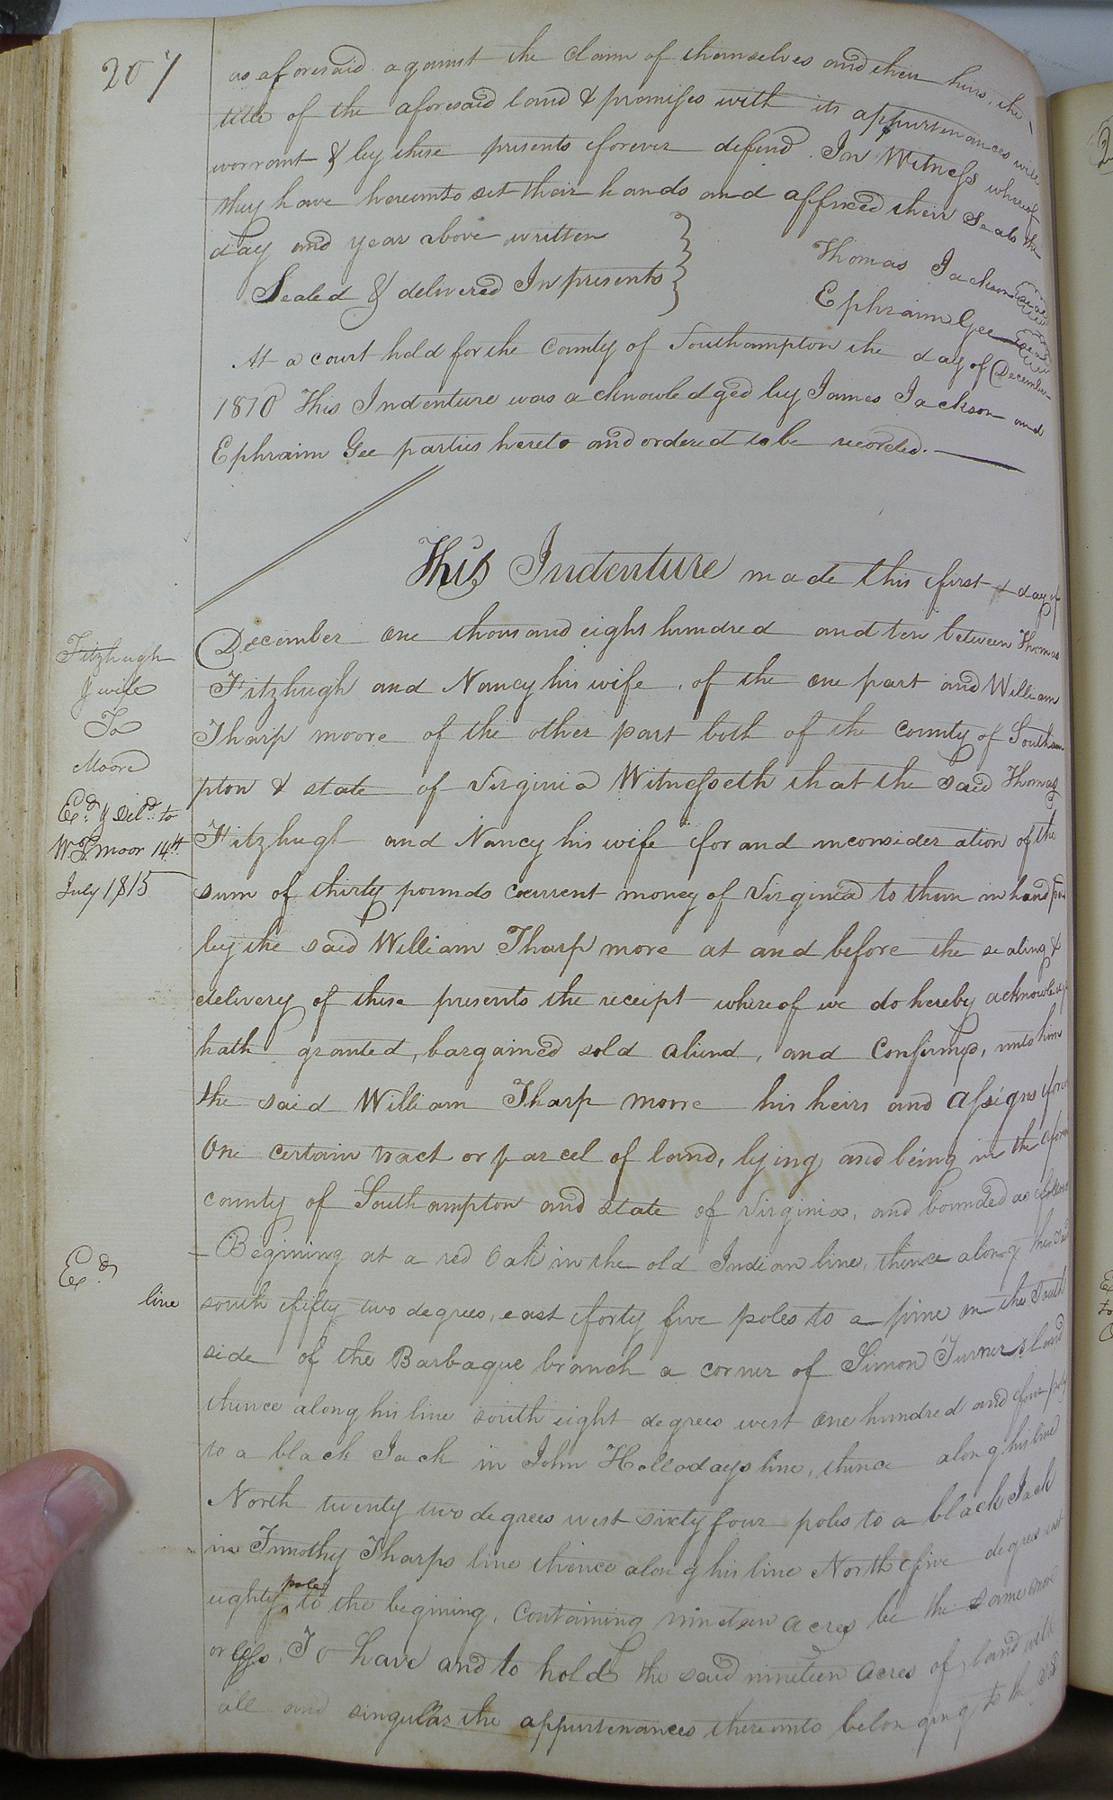 207
as aforesaid against the claim of themselves and their heirs, the
title of the aforesaid land & premises with its appurtenances will
warrant & by these presents forever defend. In Witness whereof
they have hereunto set their hands and affixed their Seals the
day and year above written
Thomas Jackson Seal
Sealed & delivered In presents
Ephraim Gee Seal
At a court held for the County of Southampton the day of December
1810 This Indenture was acknowledged by James Jackson and
Ephraim Gee parties hereto and ordered to be recorded.
This Indenture made this first day of
December one thousand eight hundred and ten between Thomas
Fitzhugh and Nancy his wife, of the one part and William
Tharp moore of the other part both of the County of Southam
pton & state of Virginia Witnesseth that the said Thomas
Fitzhugh and Nancy his wife for and inconsideration of the
sum of thirty pounds current money of Virginia to them in hand
by the said William Tharp more at and before the sealing &
delivery of these presents the receipt whereof we do hereby acknowledge
hath granted, bargained sold aliend, and Confirmed, unto him
the said William Tharp more his heirs and Assigns
One certain tract or parcel of land, lying and being in the
county of Southampton and state of Virginia, and bounded as
Begining at a red Oak in the old Indian line, thence along
south fifty two degrees, east forty five poles to a pine on the South
side of the Barbaque branch a corner of Simon Turner's land
thence along his line south eight degrees west one hundred and four
to a black Jack in John Holladays line, thence along his line
North twenty two degrees west sixty four poles to a black Jack
in Timothy Tharps line thence along his line North five degrees
eighty poles to the begining, Containing nineteen acres be the same more
or less, To have and to hold the said nineteen acres of land with
all and singular the appurtenances thereunto belonging to the
Fitzhugh
& wife
To
Moore
Exd. & Deld. to
Wm T moor 14th
July 1815
Exd.
line